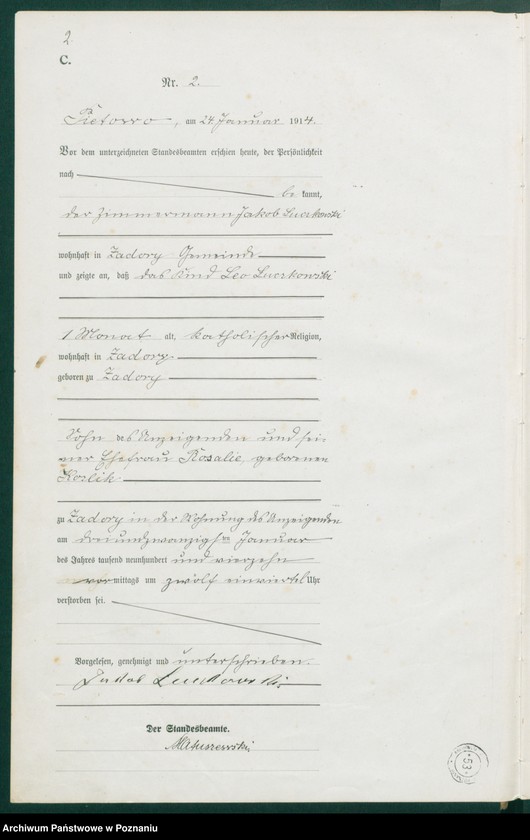 2
C.
Nr. 2.
am 24. Januar 1914.
Vor dem unterzeichneten Standesbeamten erschien heute, der Persönlichkeit
nach
be kannt,
der Zimmermann Jakob
wohnhaft in Zadory Gemeinde
und zeigte an, daß das Kind Leo
1 Monat alt, katholischer Religion,
wohnhaft in Zadory
geboren zu Zadory
Sohn des Anzeigenden und sei-
ner Ehefrau Rosalie, geborenen
Korlik
zu Zadory in der Wohnung des Anzeigenden
am dreiundzwanzigsten Januar
des Jahres tausend neunhundert und vierzehn
vor mittags um zwölf einviertel Uhr
verstorben sei.
Vorgelesen, genehmigt und unterschrieben.
Jakob
Der Standesbeamte.
53
Archiwum Państwowe w Poznaniu